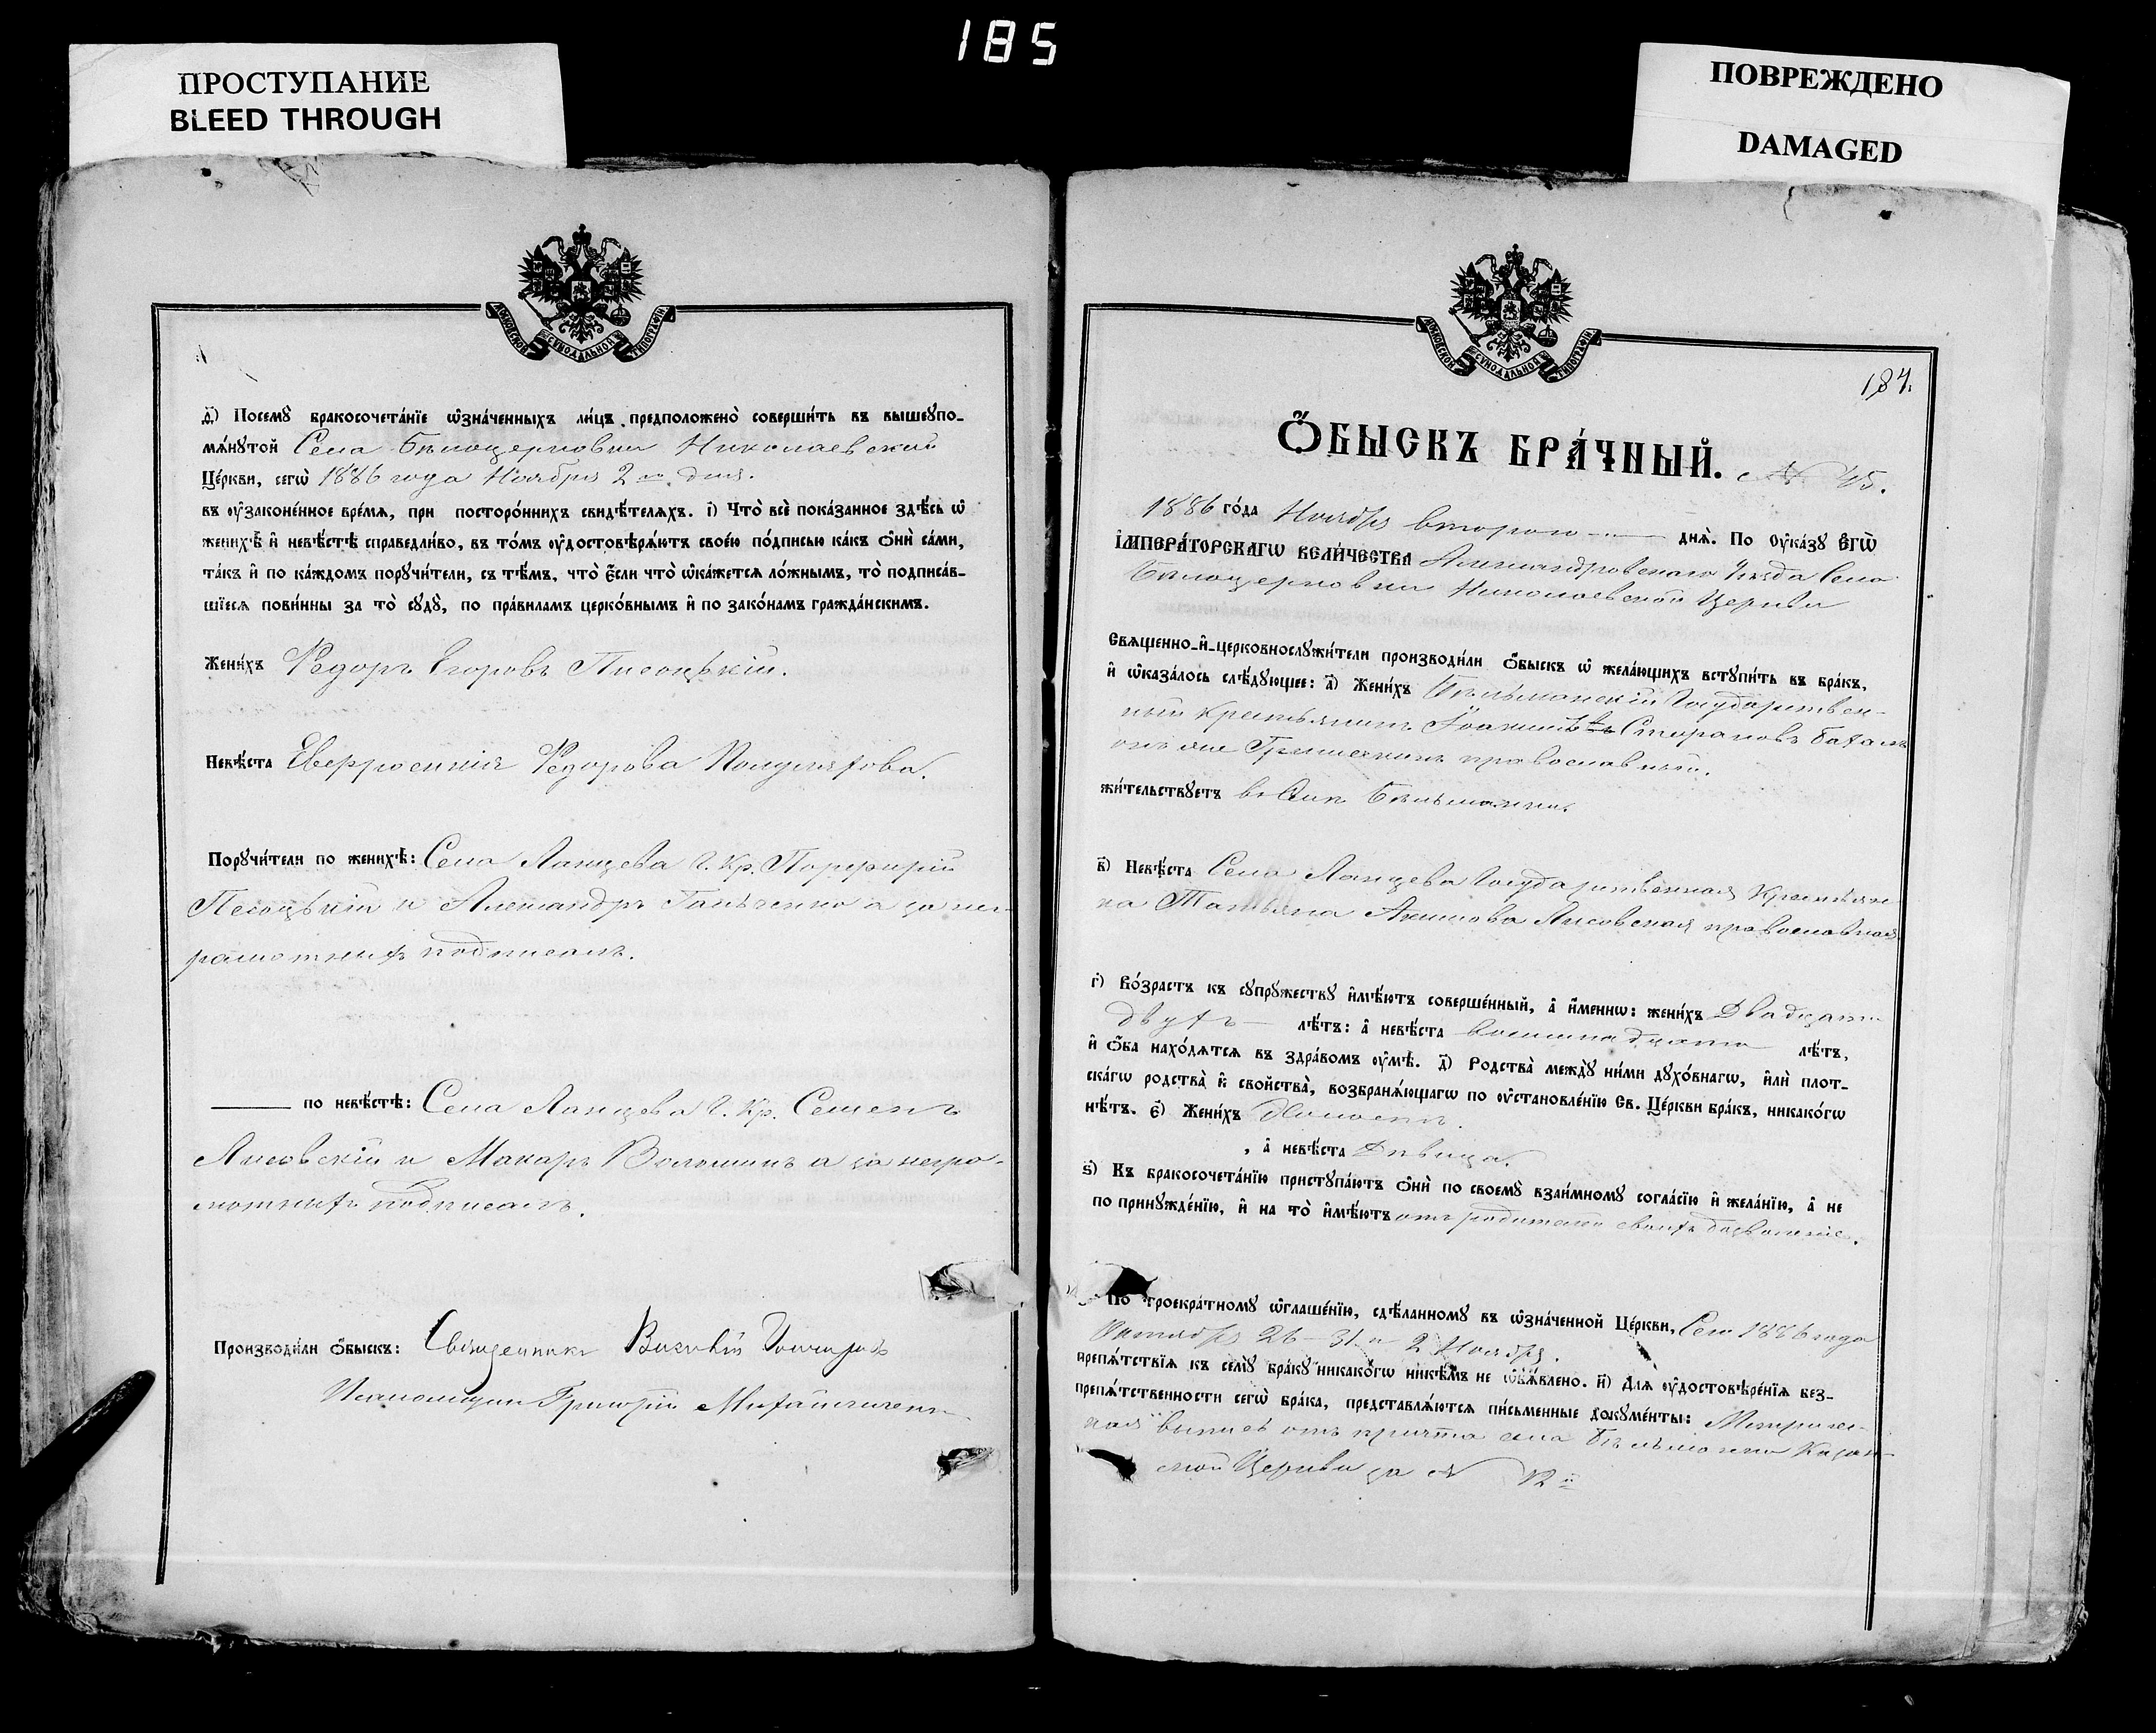 185
ПРОСТУПАНИЕ
BLEED THROUGH
ПОВРЕЖДЕНО
DAMAGED
МОСКОВСКОЙ СУНОДАЛЬНОЙ ТИПОГРАФІИ
д҃) Посемꙋ бракосочета́нїе ѡ҆зна́ченныхъ ли́цъ предположено̀ соверши́ть въ вышеꙋпо-
мѧ́нꙋтой Села Бѣлоцерковки Николаевской
Це́ркви, сегѡ̀ 1886 года Ноября 2го дня.
въ ᲂу҆зако́ненное вре́мѧ, при посторо́ннихъ свидѣ́телѧхъ. і҃) Что̀ всѐ пока́занное здѣ́сь ѡ҆
женихѣ̀ и҆ невѣ́стѣ справедли́во, въ то́мъ ᲂу҆достовѣрѧ́ютъ свое́ю по́дписью ка́къ ѻ҆нѝ са́ми,
та́къ и҆ по ка́ждомъ порꙋчи́тели, съ тѣ́мъ, что̀ є҆́сли что̀ ѡ҆ка́жетсѧ ло́жнымъ, то̀ подписа́в-
шїесѧ пови́нны за то̀ сꙋдꙋ̀, по пра́виламъ церко́внымъ и҆ по зако́намъ гражда́нскимъ.
Жени́хъ Ѳедоръ Егоровъ Писоцькій.
Невѣ́ста Евфросинія Ѳедорова Полуляхова.
Порꙋчи́тели по женихѣ̀: Села Ланцева Г. Кр. Порфирій
Песоцькій и Александръ Ганьченко а за нег-
рамотныхъ подписалъ.
по невѣ́стѣ: Села Ланцева Г. Кр. Семенъ
Лисовскій и Макаръ Волошинъ а за негра-
мотныхъ подписалъ.
Производи́ли ѻ҆́быскъ: Священникъ
Псаломщик Григорій
184.
Ѻ҆́БЫСКЪ БРА́ЧНЫЙ. № 45.
1886 го́да Ноября второго днѧ̀. По ᲂу҆ка́зꙋ Є҆гѡ̀
І҆МПЕРА́ТОРСКАГѠ ВЕЛИ́ЧЕСТВА Александровскаго Уѣзда Села
Бѣлоцерковки Николаевской Церкви
Свѧще́нно-и҆-церковнослꙋжи́тели производи́ли ѻ҆́быскъ ѡ҆ жела́ющихъ встꙋпи́ть въ бра́къ,
и҆ ѡ҆каза́лось слѣ́дꙋющее: а҃) Жени́хъ Бѣльманскій Государствен-
ный крестьянинъ Іоакимъ Стефановъ
онъ же православный.
жи́тельствꙋетъ въ Селѣ Бѣльманки.
в҃) Невѣ́ста Села Ланцева Государственная Крестьян-
ка Татьяна Акимова Лисовская православная.
г҃) Во́зрастъ къ сꙋпрꙋ́жествꙋ и҆мѣ́ютъ соверше́нный, а҆ и҆́меннѡ: жени́хъ Двадцати
двухъ лѣ́тъ: а҆ невѣ́ста восемнадцати лѣ́тъ,
и҆ ѻ҆́ба нахо́дѧтсѧ въ здра́вомъ ᲂу҆мѣ̀. д҃) Родства̀ междꙋ̀ ни́ми дꙋхо́внагѡ, и҆лѝ плот-
ска́гѡ родства̀ и҆ свойства̀, возбранѧ́ющагѡ по ᲂу҆становле́нїю Св. Це́ркви бра́къ, никако́гѡ
нѣ́тъ. є҃) Жени́хъ Холостъ.
, а҆ невѣ́ста Дѣвица.
ѕ҃) Къ бракосочета́нїю пристꙋпа́ютъ ѻ҆нѝ по своемꙋ̀ взаи́мномꙋ согла́сїю и҆ жела́нїю, а҆ не
по принꙋжде́нїю, и҆ на то̀ и҆мѣ́ютъ отъ родителей своихъ дозволеніе.
По троекра́тномꙋ ѡ҆глаше́нїю, сдѣ́ланномꙋ въ ѡ҆зна́ченной Це́ркви, Сего 1886 года
Октября 26 – 31 и 2 Ноября.
препѧ́тствїѧ къ семꙋ̀ бра́кꙋ никако́гѡ никѣ́мъ не ѡ҆б̾ѧ́влено. и҃) Длѧ̀ ᲂу҆достовѣре́нїѧ без-
препѧ́тственности сегѡ̀ бра́ка, представлѧ́ютсѧ пи́сьменные докꙋме́нты: Метричес-
кая выпись отъ причта села Бѣльманки Казан-
ской Церкви за №